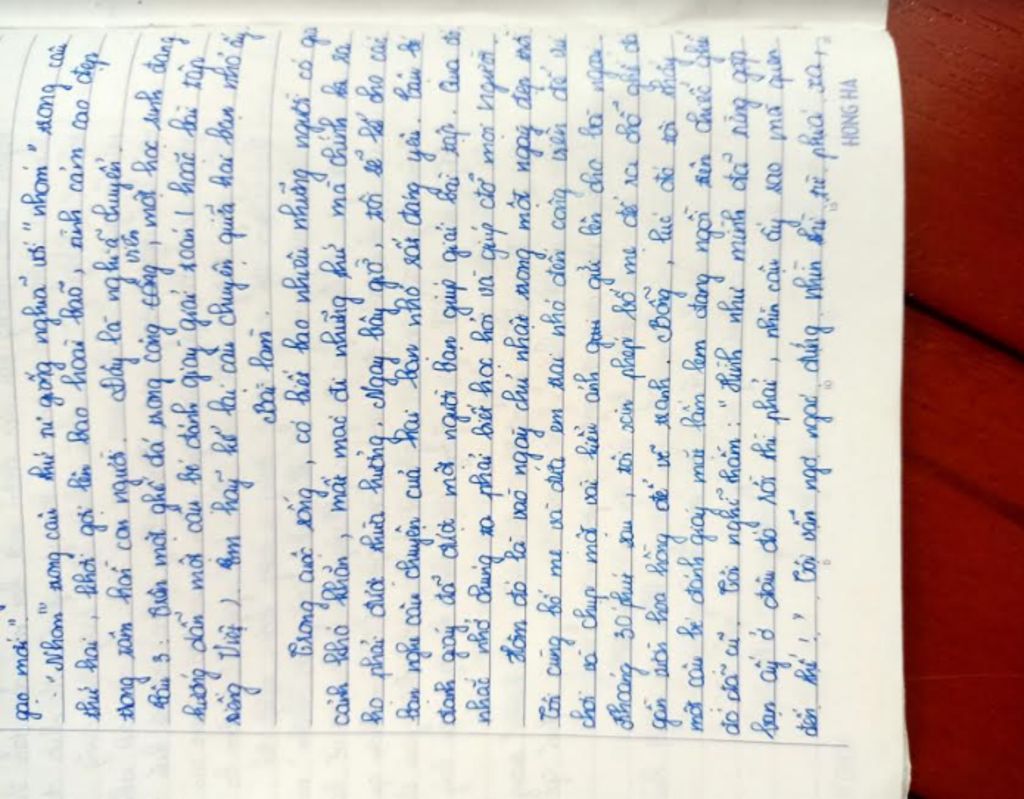 gạo mới"
"Nhóm" trong câu thứ tư giống nghĩa với "nhóm" trong câu
thứ hai, khơi gợi lên bao hoài bão, tình cảm cao đẹp
trong tâm hồn con người. Đây là nghĩa chuyển.
Câu 3: Trên một ghế đá trong công viên, một học sinh đang
hướng dẫn một cậu bé đánh giày giải toán (hoặc bài tập
tiếng Việt), em hãy kể lại câu chuyện giữa hai bạn nhỏ ấy.
Bài làm.
Trong cuộc sống, có biết bao nhiêu những người có gia
cảnh khó khăn, mất mát đi những thứ mà chính ra
họ phải được thừa hưởng. Ngay bây giờ, tôi sẽ kể cho các
bạn nghe câu chuyện của hai bạn nhỏ rất đáng yêu. Cậu bé
đánh giày đã được một người bạn giúp giải bài tập. Qua đó
nhắc nhở chúng ta phải biết học hỏi và giúp đỡ mọi người.
Hôm đó là vào ngày chủ nhật trong một ngày đẹp trời
Tôi cùng bố mẹ và đứa em trai nhỏ đến công viên để vui
chơi và chụp một vài kiểu ảnh gửi lên cho bà ngoại.
Khoảng 30 phút sau, tôi xin phép bố mẹ để ra chỗ ghế đá
gần vườn hoa hồng để vẽ tranh. Bỗng, lúc đó tôi thấy
một cậu bé đánh giày mặt lấm lem đang ngồi trên chiếc ghế
đó đã cũ. Tôi nghĩ thầm: "Hình như mình đã từng gặp
bạn ấy ở đâu đó rồi thì phải, nhìn cậu ấy sao mà quen
đến thế!". Tôi vẫn ngơ ngác đứng nhìn thì từ phía xa,
HONG HA